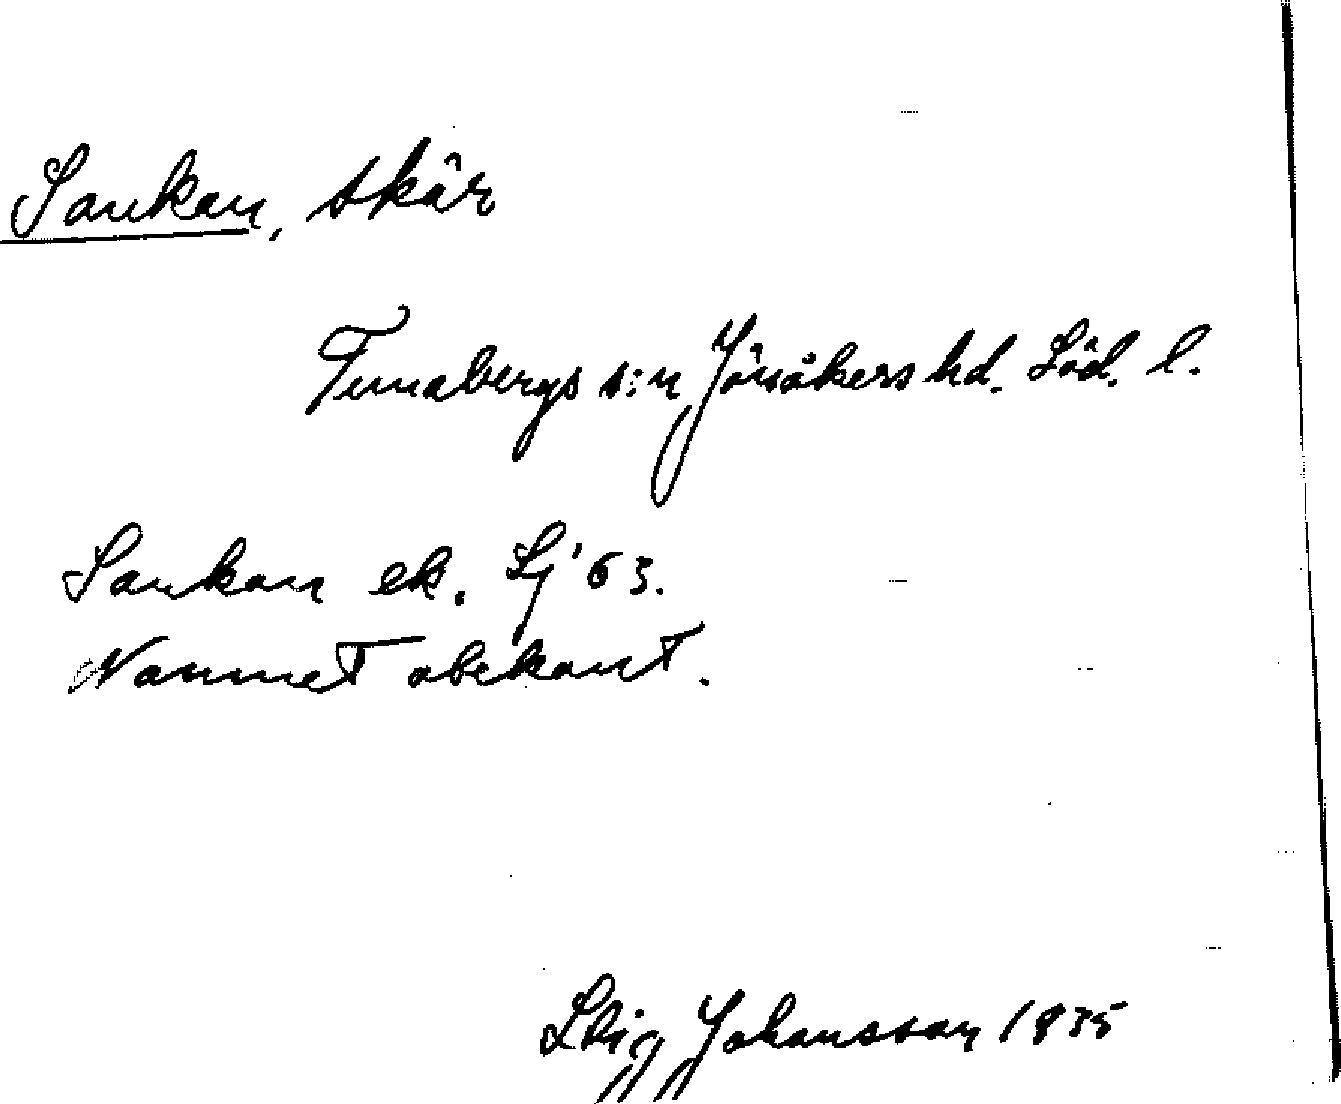 Sankan, skär
Tunabergs s:n Jönåkers hd. Söd. l.
Sankan ek. Sj '63.
Namnet obekant.
Stig Johansson 1935